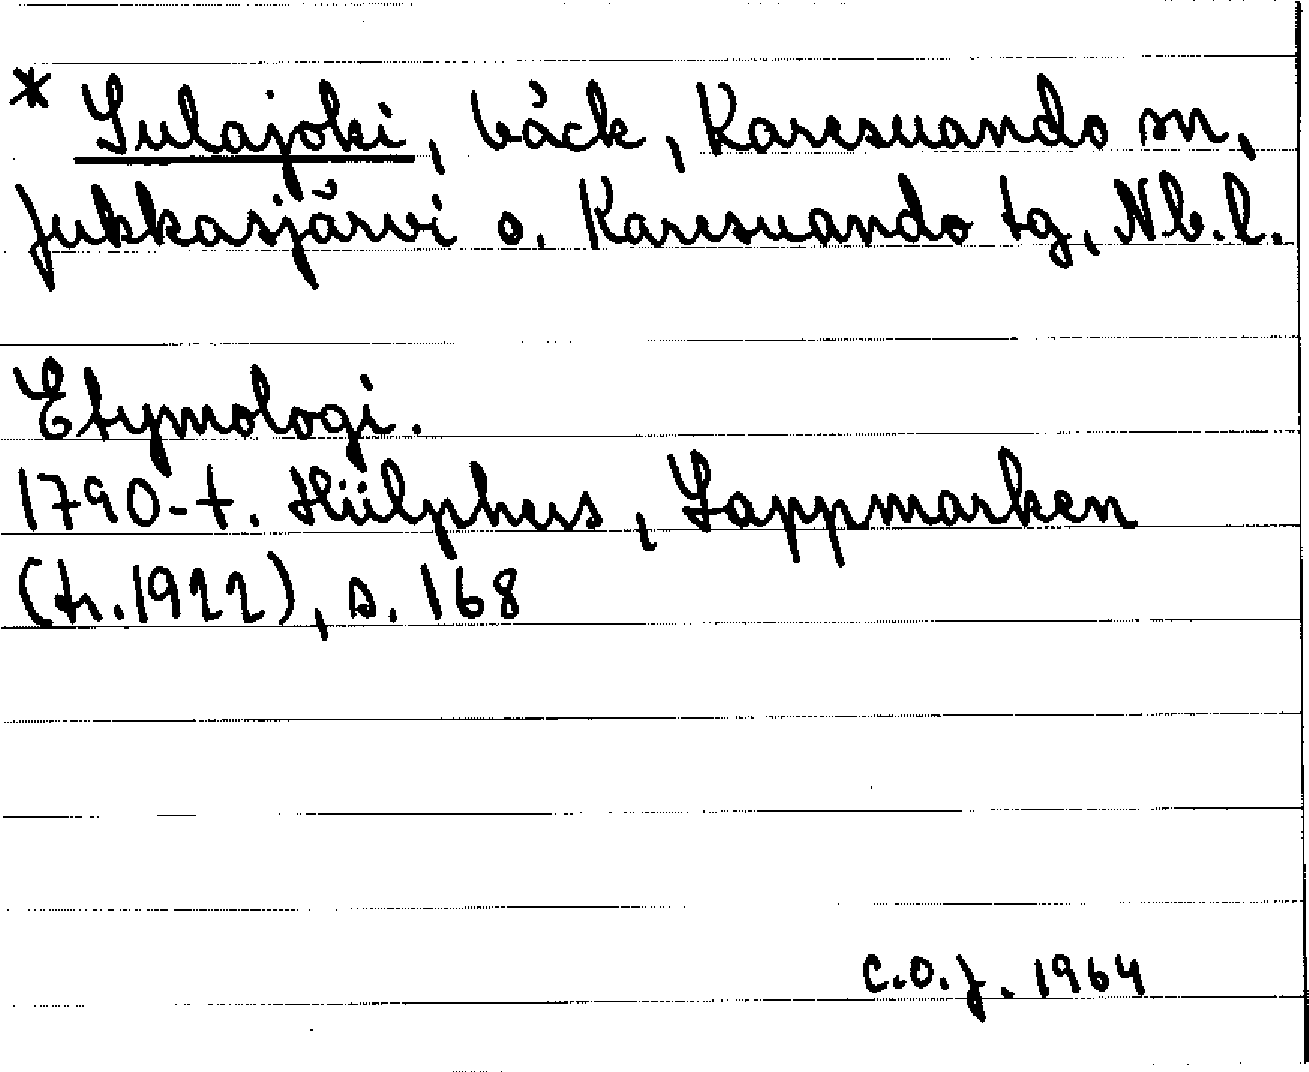 * Sulajoki, bäck, Karesuando sn,
Jukkasjärvi o. Karesuando tg, Nb.l.
Etymologi.
1790-t. Hülphers, Lappmarken
(tr. 1922), s. 168
C.O.J. 1964